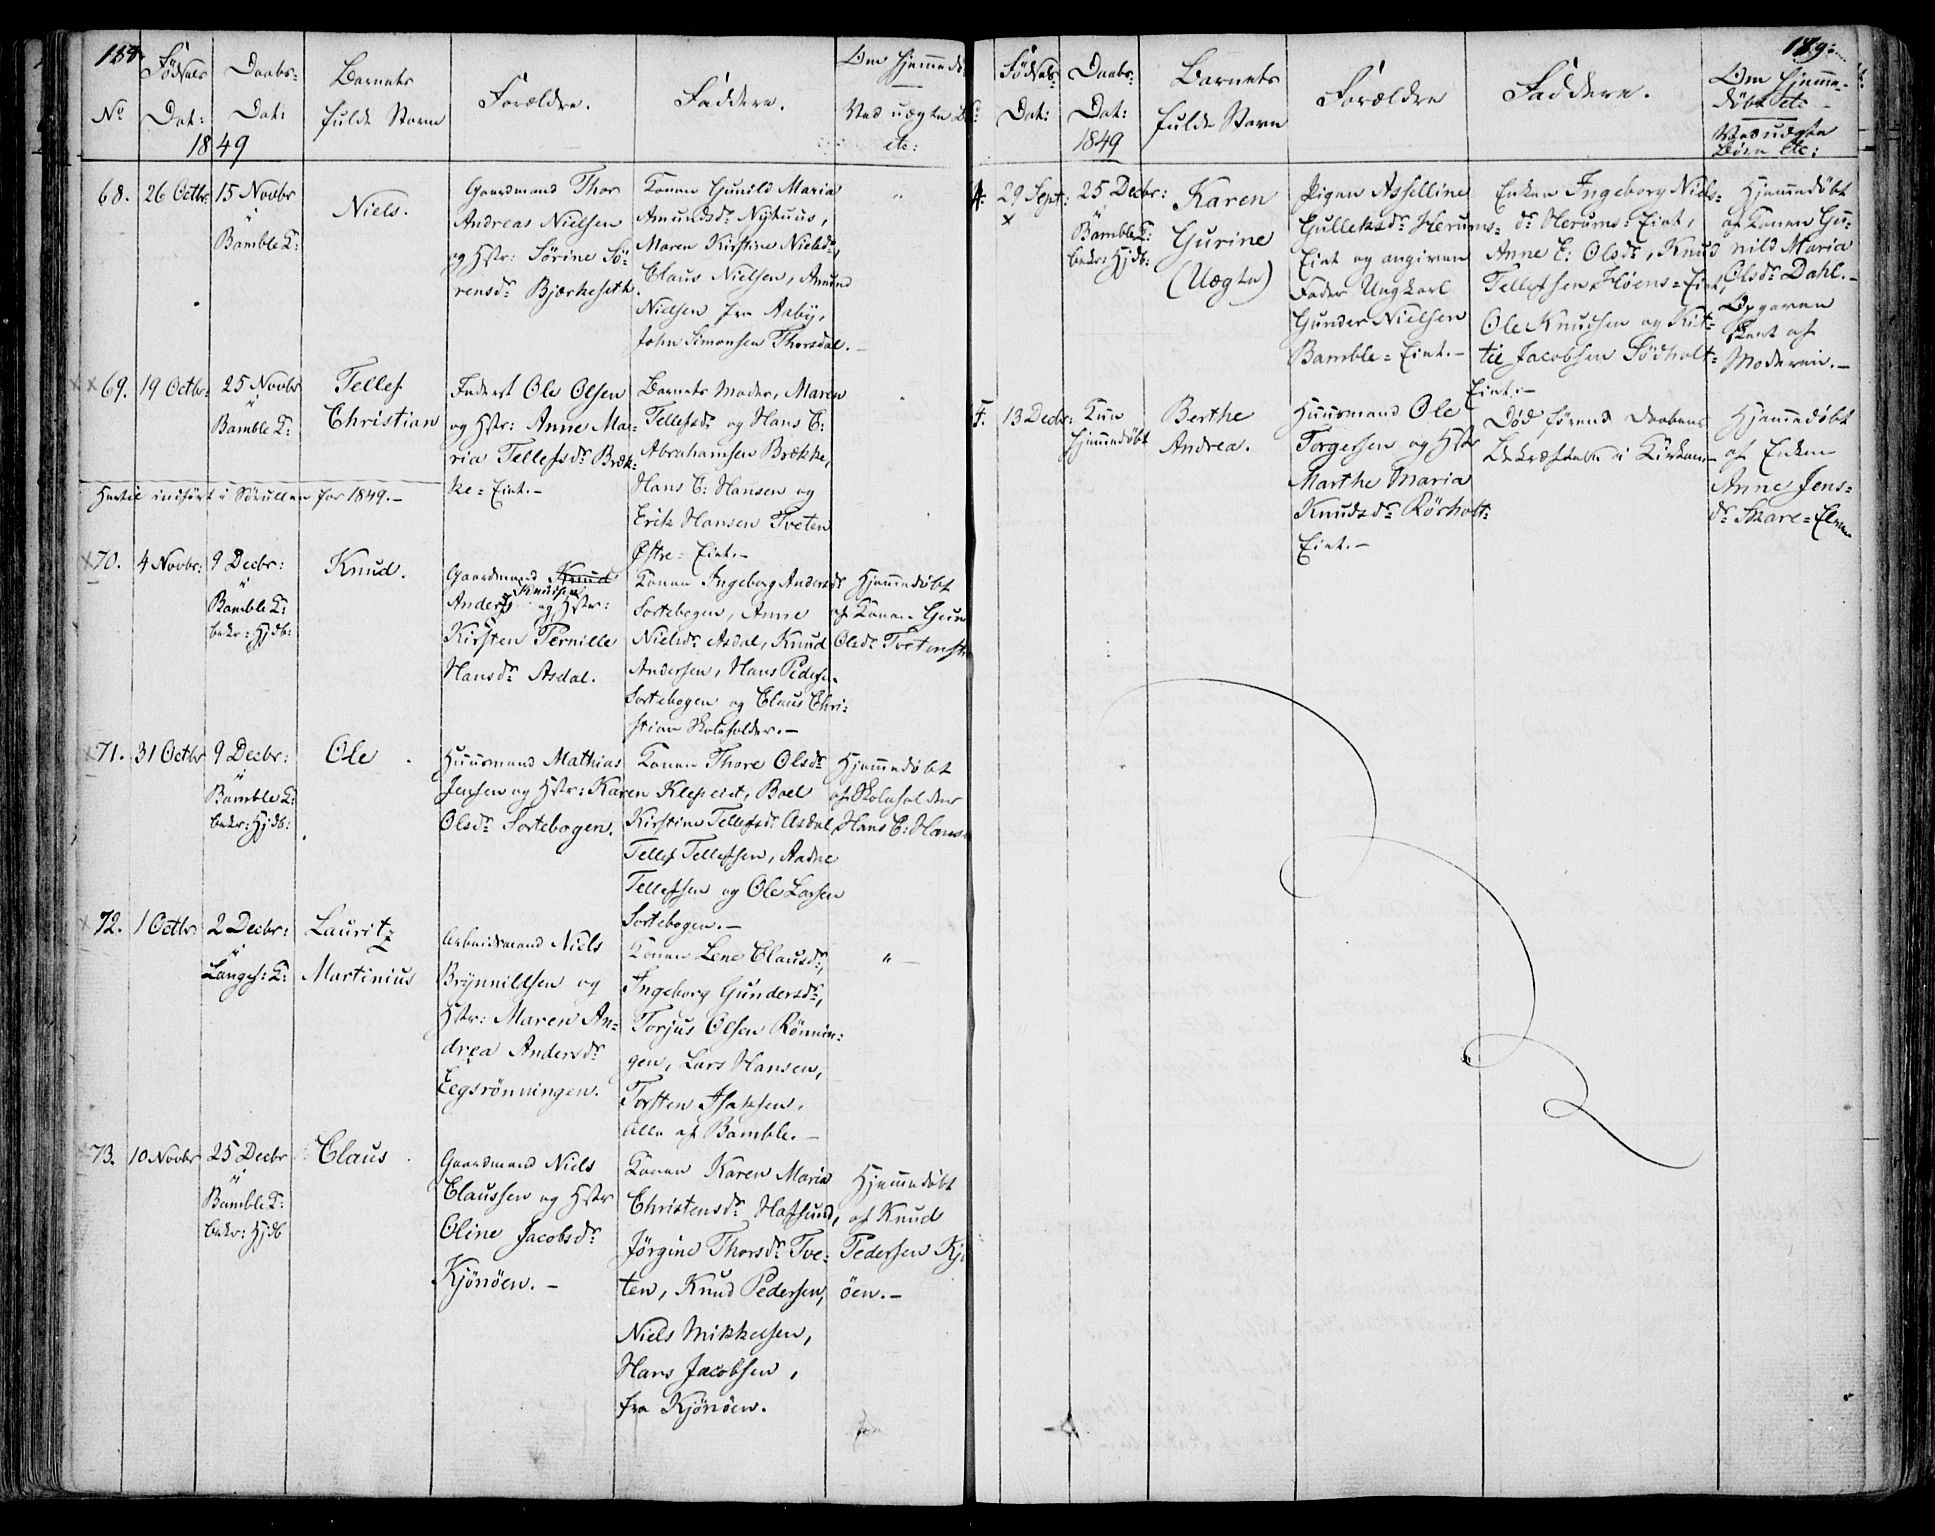 189.
No
Fødsels Dat:
Daabs: Dat:
1849
Barnets fulde Navn
Forældre.
Faddere.
Om hjemmedø
Ved uægte B:
etc:
68.
26 Octbr:
15 Novbr
i
Bamble K:
Niels.
Gaardmand Thor
Andreas Nielsen
og Hstr: Sörine Sö=
rensdr Bjerkeseth.
Konen Gunild Maria
Amundsdr Nyhuus,
Maren Kirstine Nielsdr,
Claus Nielsen, Amund
Nielsen fra Aaby,
John Simonsen Thorsdal.–
"
69.
19 Octbr:
25 Novbr
i
Bamble K:
Tellef
Christian
Inderst Ole Olsen
og Hstr: Anne Ma=
ria Tellefsdr Bræk=
ke=Eiet.–
Barnets Moder, Maren
Tellefsdr og Hans C:
Abrahamsen Brække,
Hans C: Hansen og
Erik Hansen Tveten
Østre=Eiet.–
Hertil indført i Sörullen for 1849.–
70.
4 Novbr:
9 Decbr:
i
Bamble K:
bekr: Hjdb:
Knud.
Gaardmand Knud
Anders Knudsen og Hstr:
Kirsten Pernille
Hansdr Asdal.
Konen Ingeborg Andersdr
Sortebogen, Anne
Nielsdr Asdal, Knud
Andersen, Hans Pedersen
Sortebogen og Claus Chri=
stian Skoleholder.–
Hjemmedøbt
af Konen Gun
Olsdr Tveten
71.
31 Octbr
9 Decbr:
i
Bamble K:
bekr: Hjdb:
Ole
Huusmand Mathias
Jensen og Hstr: Karen
Olsdr Sortebogen.
Konen Thore Olsdr
Klepeiet, Boel
Kirstine Tellefsdr Asdal,
Tellef Tellefsen, Aadne
Tellefsen og Ole Larsen
Sortebogen.–
Hjemmedøbt
af Skoleholder
Hans C: Hanse
72.
1 Octbr:
2 Decbr:
i
Langes: K:
Lauritz
Martinius
Arbeidsmand Niels
Brynnildsen og
Hstr: Maren An=
drea Andersdr
Eegsrönningen.
Konen Lene Clausdr,
Ingeborg Gundersdr,
Torjus Olsen Rönnin=
gen, Lars Hansen,
Torsten Isaksen,
Alle af Bamble.–
"
73.
10 Novbr
25 Decbr
i
Bamble K:
bekr: Hjdb
Claus
Gaardmand Niels
Claussen og Hstr
Oline Jacobsdr
Kjönöen.–
Konen Karen Maria
Christensdr Hafsund,
Jörgine Thorsdr Tve=
ten, Knud Pedersen,
Niels Mikkelsen,
Hans Jacobsen,
fra Kjönöen.
Hjemmedøbt
af Knud
Pedersen Kj
öen.–
189:
Fødsels Dat:
Daabs: Dat:
1849
Barnets fulde Navn
Forældre
Faddere.
Om Hjemme=
døbt etc
Ved uægte
Børn etc:
4.
29 Sept:
25 Decbr:
i
Bamble K:
bekr: Hjdb:
Karen
Gurine
(Uægte)
Pigen Asselline
Gulleksdr Herums=
Eiet og angiven
Fader Ungkarl
Gunder Nielsen
Bamble=Eiet.–
Enken Ingeborg Niels=
dr Herums=Eiet,
Anne C: Olsdr, Knud
Tellefsen Höens=Eiet,
Ole Knudsen og Kit=
til Jacobsen Södholt=
Eiet.–
Hjemmedøbt
af Konen Gu=
nild Maria
Olsdr Dahl.–
Opgaven
skeet af
Moderen.–
5.
13 Decbr:
Kun
hjemmedøbt
Berthe
Andrea.
Huusmand Ole
Torgersen og Hstr
Marthe Maria
Knudsdr Rörholt=
Eiet.–
Død førend Daabens
Bekræftelse i Kirken.–
Hjemmedøbt
af Enken
Anne Jens=
dr